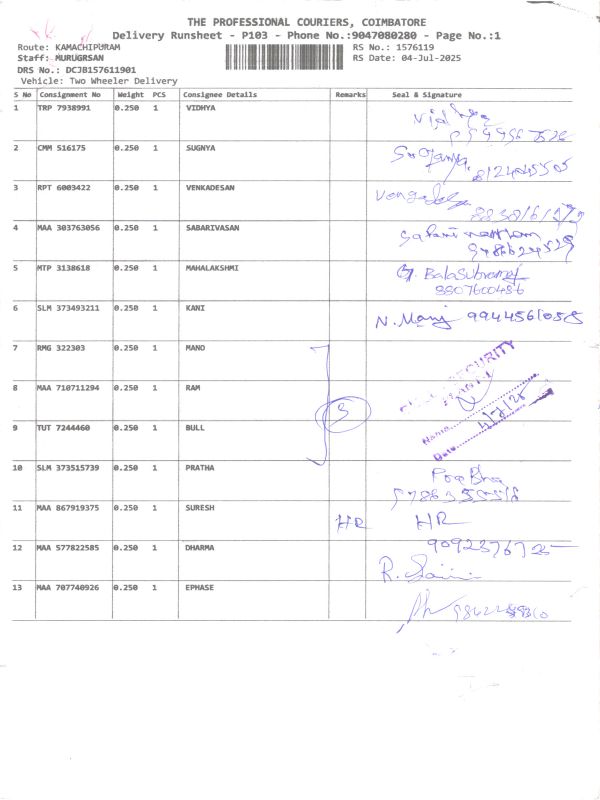 THE PROFESSIONAL COURIERS, COIMBATORE
Delivery Runsheet - P103 - Phone No.:9047080280 - Page No.:1
Route: KAMACHIPURAM RS No.: 1576119
Staff: MURUGRSAN RS Date: 04-Jul-2025
DRS No.: DCJB157611901
Vehicle: Two Wheeler Delivery
S No Consignment No Weight PCS Consignee Details Remarks Seal & Signature
1 TRP 7938991 0.250 1 VIDHYA
2 CMM 516175 0.250 1 SUGNYA
8124045505
3 RPT 6003422 0.250 1 VENKADESAN
4 MAA 303763056 0.250 1 SABARIVASAN
5 MTP 3138618 0.250 1 MAHALAKSHMI
9507600486
6 SLM 373493211 0.250 1 KANI
N. Mani 9944561058
7 RMG 322303 0.250 1 MANO
SECURITY
8 MAA 710711294 0.250 1 RAM
3
4/7/25
9 TUT 7244460 0.250 1 BULL
Name
Date
10 SLM 373515739 0.250 1 PRATHA
11 MAA 867919375 0.250 1 SURESH
HR HR
12 MAA 577822585 0.250 1 DHARMA
R.
13 MAA 707740926 0.250 1 EPHASE